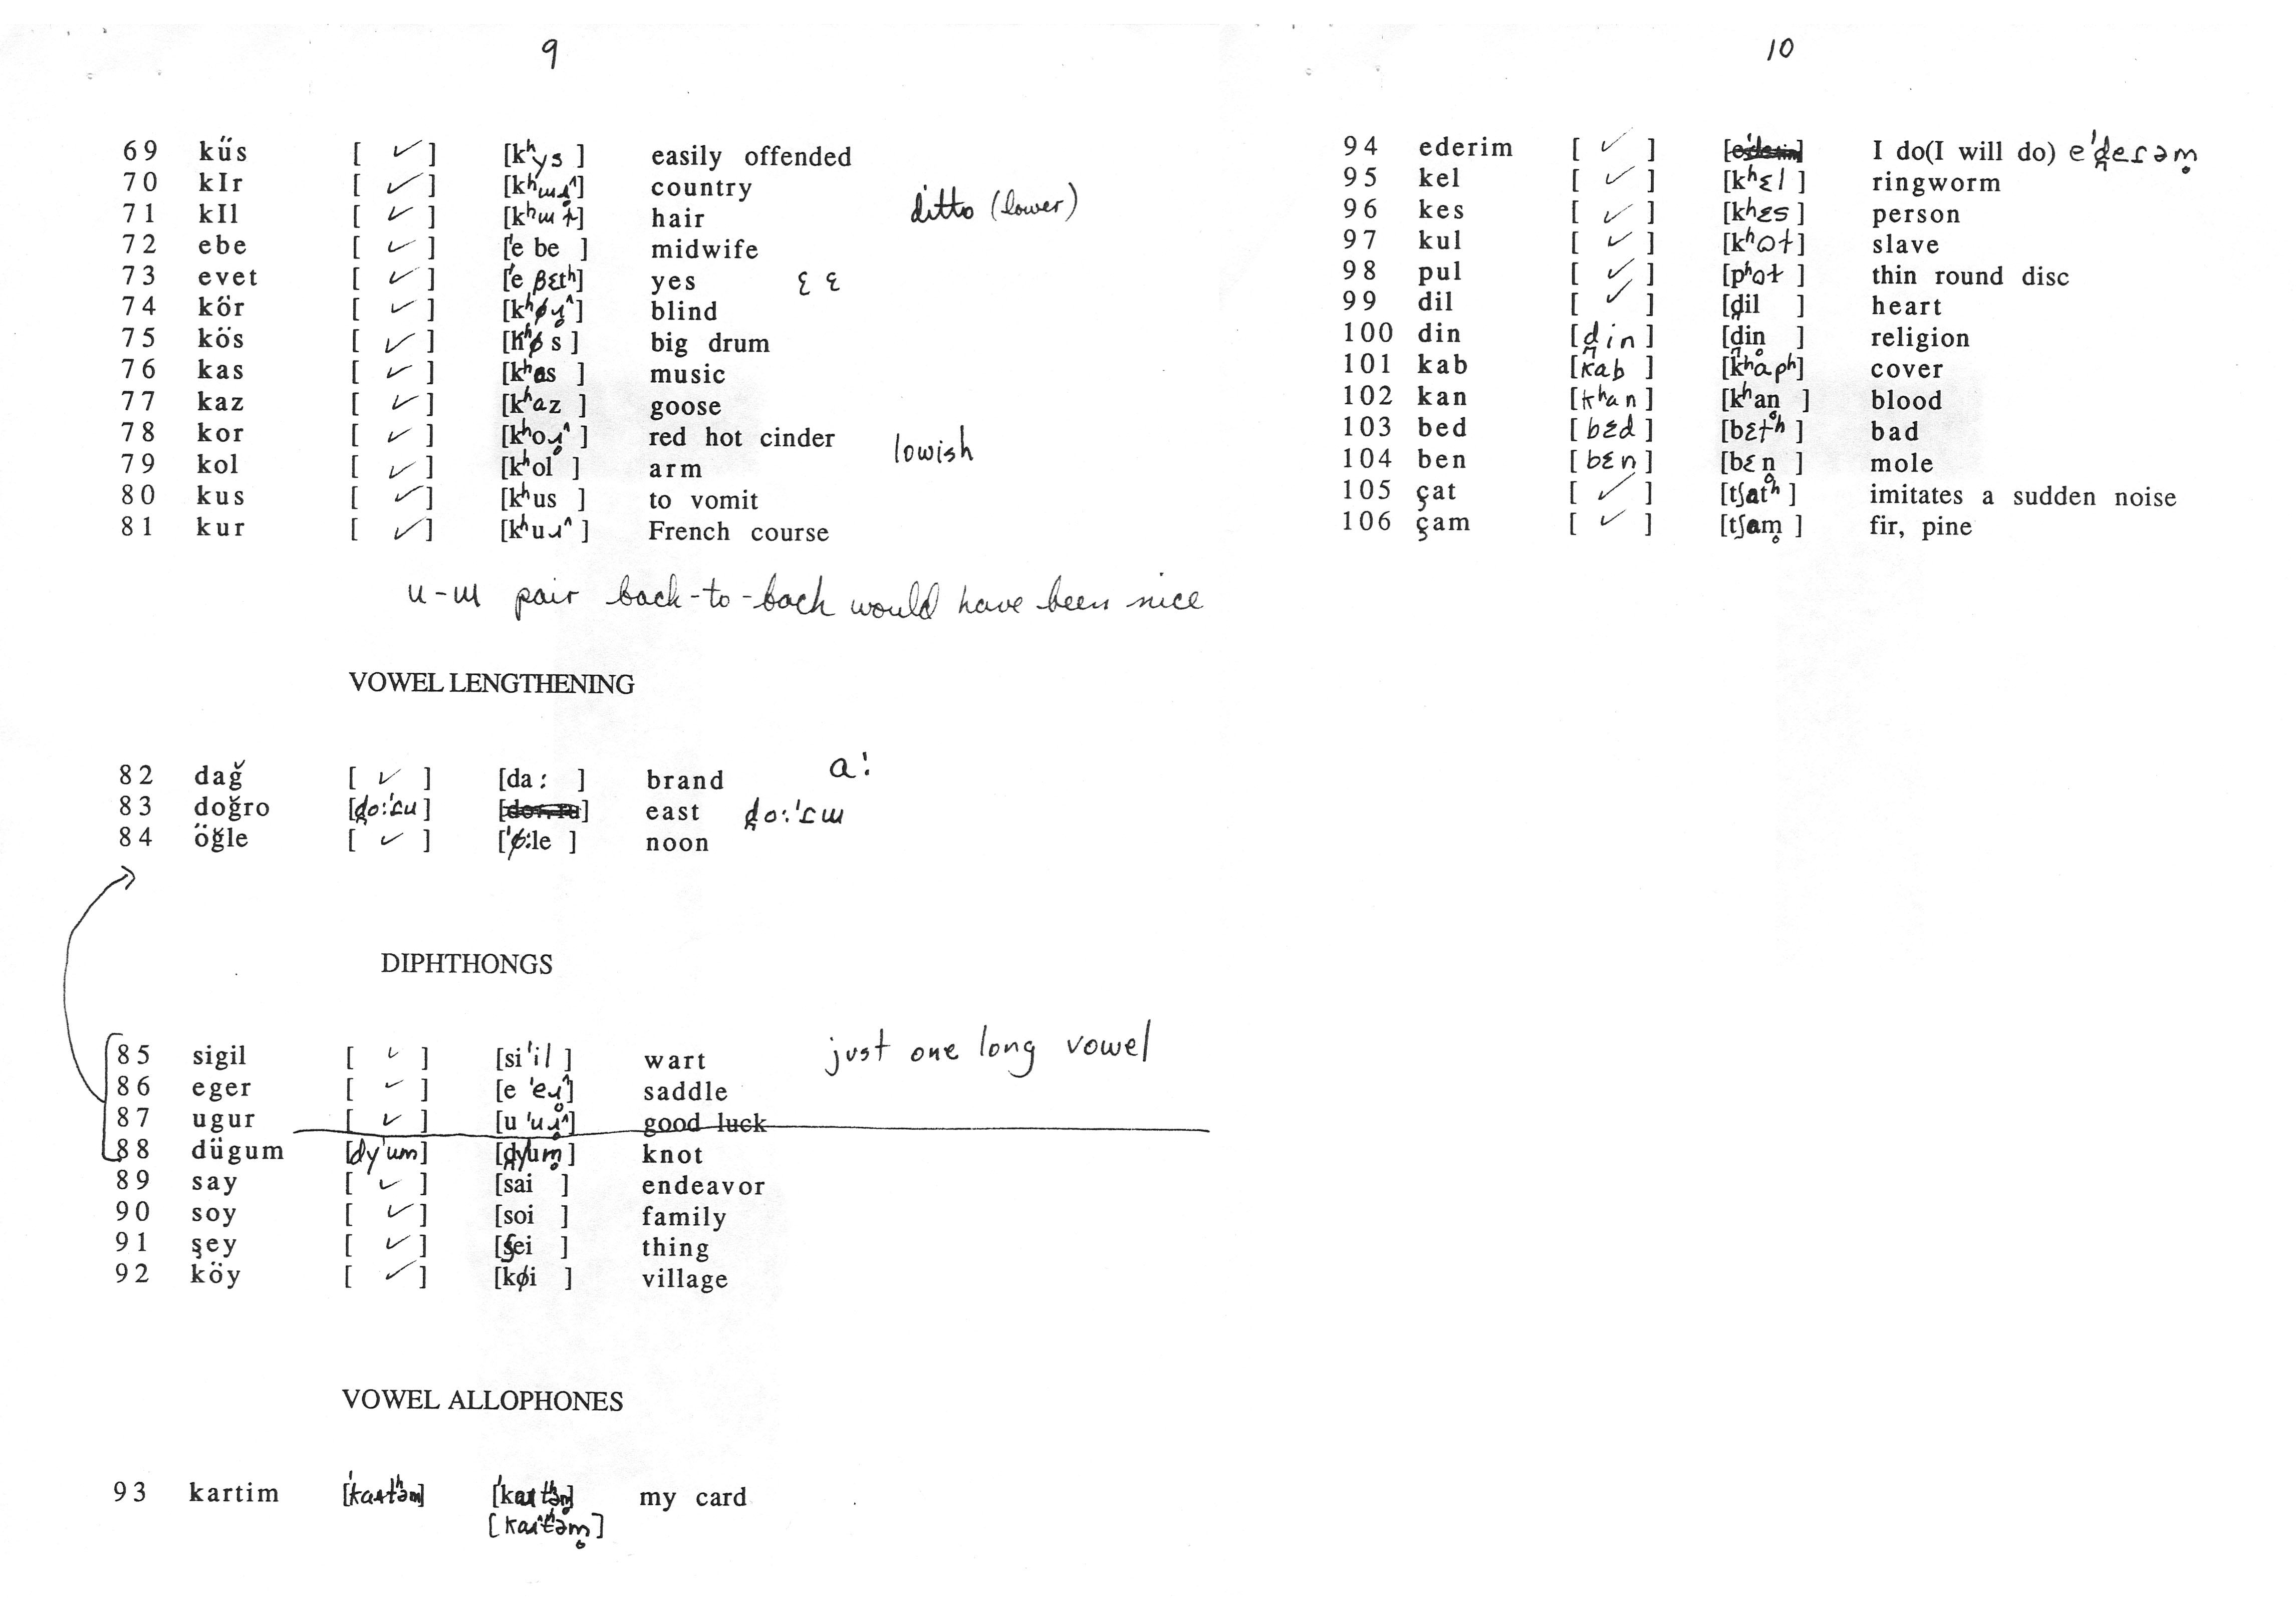 9
69 küs [ ✓ ] [kʰys ] easily offended
70 kIr [ ✓ ] [kʰɯɹ̥^] country
71 kIl [ ✓ ] [kʰɯɫ] hair ditto (lower)
72 ebe [ ✓ ] ['e be ] midwife
73 evet [ ✓ ] ['e βɛtʰ] yes ɛ ɛ
74 kör [ ✓ ] [kʰøɹ̥^] blind
75 kös [ ✓ ] [kʰøs ] big drum
76 kas [ ✓ ] [kʰas ] music
77 kaz [ ✓ ] [kʰaz ] goose
78 kor [ ✓ ] [kʰoɹ̥^] red hot cinder lowish
79 kol [ ✓ ] [kʰol ] arm
80 kus [ ✓ ] [kʰus ] to vomit
81 kur [ ✓ ] [kʰuɹ^] French course
u-ɯ pair back-to-back would have been nice
VOWEL LENGTHENING
82 dağ [ ✓ ] [da: ] brand a:
83 doğro [d̪o:'ɾu] [ ] east d̪o:'ɾɯ
84 öğle [ ✓ ] ['ø:le ] noon
DIPHTHONGS
85 sigil [ ✓ ] [si'il ] wart just one long vowel
86 eger [ ✓ ] [e 'eɹ̥^] saddle
87 ugur [ ✓ ] [u 'uɹ̥^] good luck
88 dügum [dy'um] [d̪y'um̥ ] knot
89 say [ ✓ ] [sai ] endeavor
90 soy [ ✓ ] [soi ] family
91 şey [ ✓ ] [ʃei ] thing
92 köy [ ✓ ] [køi ] village
VOWEL ALLOPHONES
93 kartim ['kaɹtʰəm] ['kaɹtʰəm̥] my card
[kaɹtʰəm̥]
10
94 ederim [ ✓ ] [ ] I do(I will do) e'd̪eɾəm̥
95 kel [ ✓ ] [kʰɛl ] ringworm
96 kes [ ✓ ] [kʰɛs ] person
97 kul [ ✓ ] [kʰoɫ] slave
98 pul [ ✓ ] [pʰoɫ ] thin round disc
99 dil [ ✓ ] [d̪il ] heart
100 din [d̪in] [d̪in̥ ] religion
101 kab [kab ] [kʰapʰ] cover
102 kan [kʰan] [kʰan̥ ] blood
103 bed [bɛd] [bɛtʰ ] bad
104 ben [bɛn] [bɛn̥ ] mole
105 çat [ ✓ ] [tʃatʰ ] imitates a sudden noise
106 çam [ ✓ ] [tʃam̥ ] fir, pine